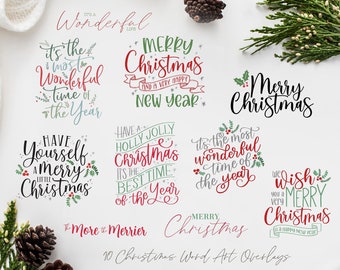 it's a
Wonderful
life
it's the
most
Wonderful
time of
the Year
MERRY
Christmas
AND A VERY HAPPY
NEW YEAR
Merry
Christmas
HAVE
Yourself
a merry
LITTLE
Christmas
HAVE A
HOLLY JOLLY
Christmas
IT'S THE
BEST TIME
of the Year
it's the most
wonderful
time of
the year
We
Wish
YOU A
VERY
MERRY
Christmas
& A HAPPY NEW YEAR
The More the Merrier
MERRY
Christmas
10 Christmas Word Art Overlays